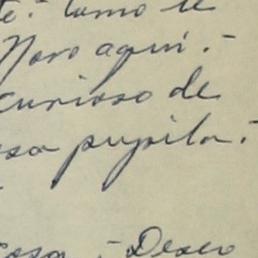 te. - como te
Moro aqui. -
curioso de
esa pupila. -
cosa. - Deseo